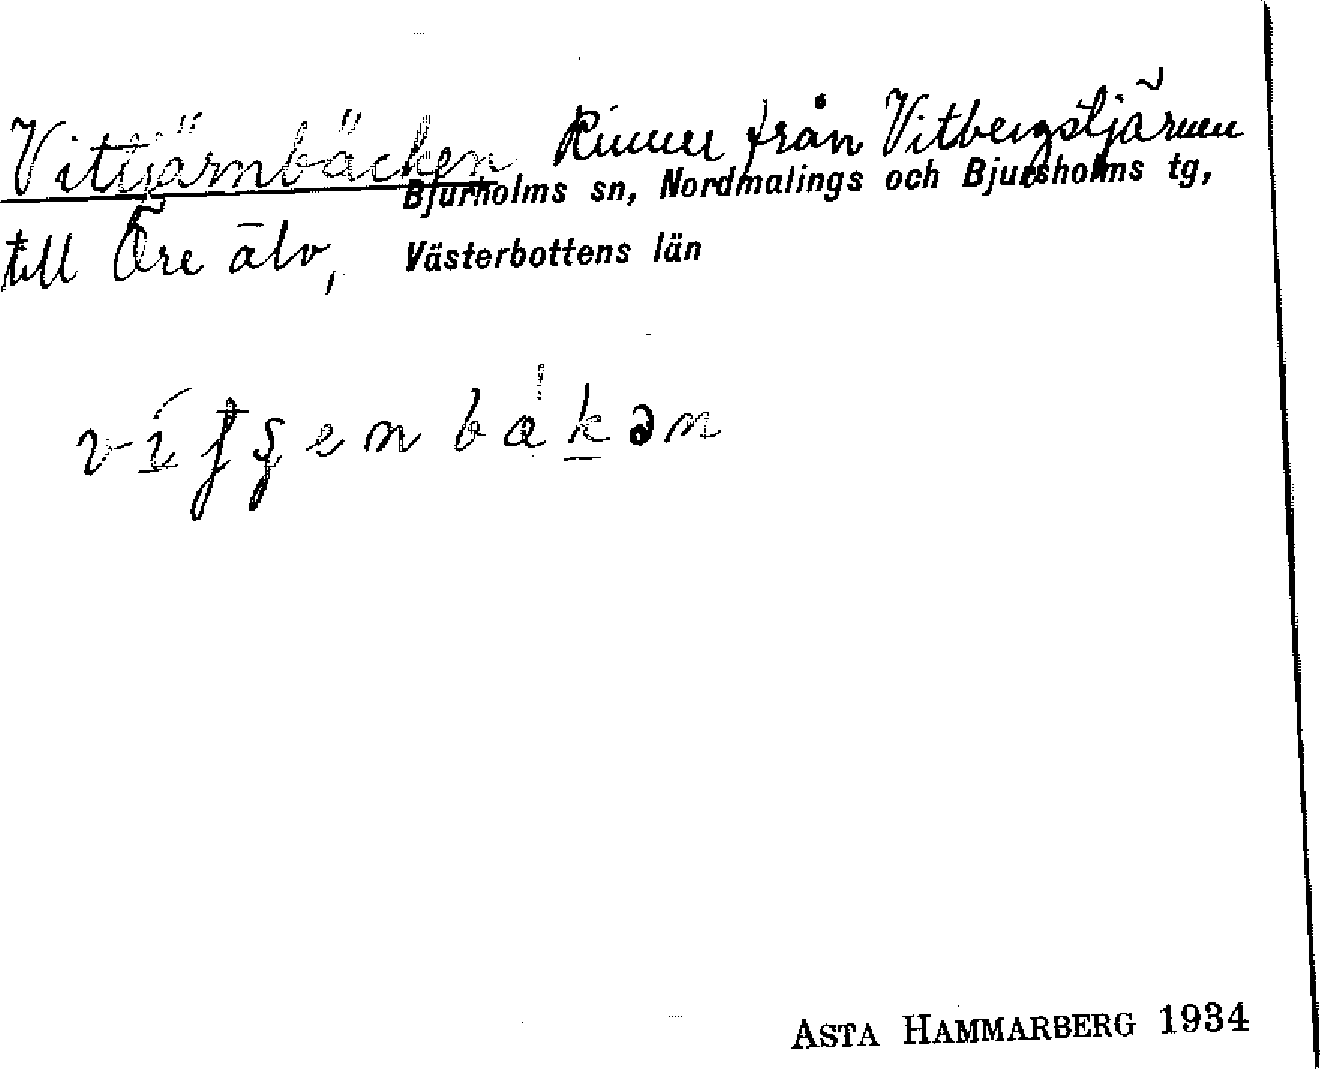 Vittjärnbäcken Rinner från Vitbergstjärnen
Bjurholms sn, Nordmalings och Bjursholms tg,
till Öre älv, Västerbottens län
ASTA HAMMARBERG 1934